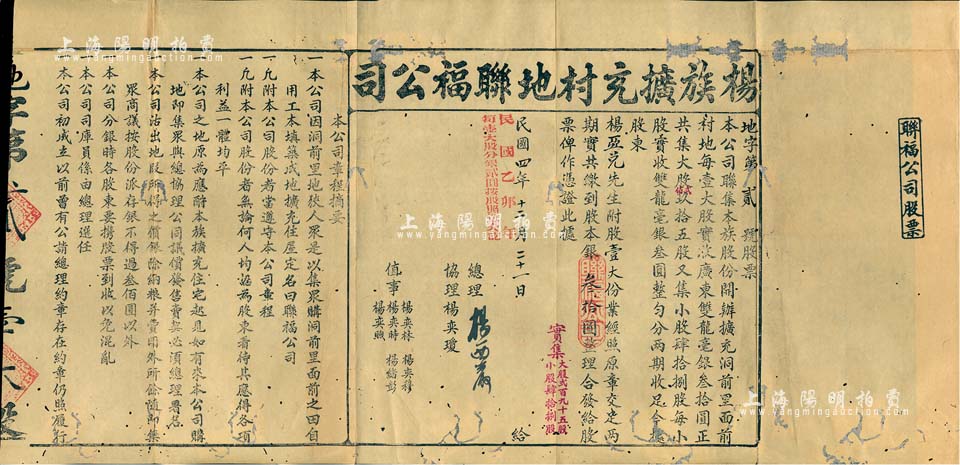 聯福公司股票
楊族擴充村地聯福公司
地字第 貳 號股票
本公司聯集本族股份開辦擴充洞前里面前
村地每壹大股實收廣東雙龍毫銀叁拾圓正
共集大股玖拾五股又集小股肆拾捌股每小
股實收雙龍毫銀叁圓整勻分兩期收足今據
股東
楊盈充先生附股壹大份業經照原章交足兩
期實共繳到股本銀叁拾圓整理合發給股
票俾作憑證此據
實集大股弍百九十五股
小股肆拾捌股
總理 楊西巖
協理楊奕瓊
值事 楊奕林 楊奕穆
楊奕時 楊緒彭
楊奕照
給
民國四年十一月二十一日
民國乙卯年
本公司章程摘要
一本公司因洞前里地狹人衆是以集衆購洞前里面前之田自
用工本填築成地擴充住屋定名曰聯福公司
一凡附本公司股份者當遵守本公司章程
一凡附本公司股份者無論何人均認為股東看待其應得各項
利益一體均平
本公司之地原為應酧本族擴充住宅起見如有來本公司購
地即集衆與總協理公同議價發售賣契必須總理署名
本公司沽出地段所得之價銀除納粮并費用外所餘隨即集
衆商議按股份派存銀不得過叁佰圓以外
本公司分銀時各股東要携股票到收以免混亂
本公司司庫員係由總理選任
本公司初成立以前曾有公請總理約章存在約章仍照履行
地字第貳號壹大股
上海陽明拍賣
www.yangmingauction.com
上海陽明拍賣
www.yangmingauction.com
上海陽明拍賣
www.yangmingauction.com
上海陽明拍賣
www.yangmingauction.com
上海陽明拍賣
www.yangmingauction.com